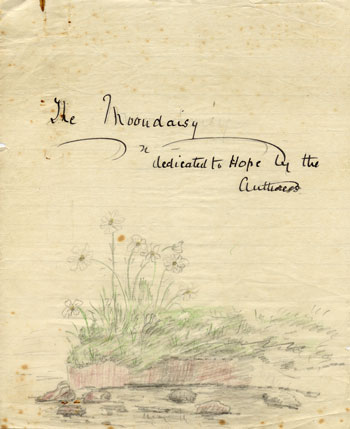 The Moondaisy
dedicated to Hope by the
Authoress